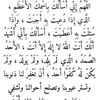 اللَّهُمَّ إِنِّي أَسْأَلُكَ بِاسْمِكَ الْأَعْظَمِ
الَّذِي إِذَا دُعِيتَ بِهِ أَجَبْتَ ، وَإِذَا
سُئِلْتَ بِهِ أَعْطَيْتَ ، أَسْأَلُكَ بِأَنِّي أَشْهَدُ
أَنَّكَ أَنْتَ اللَّهُ لَا إِلَهَ إِلَّا أَنْتَ الْأَحَدُ
الصَّمَدُ الَّذِي لَمْ يَلِدْ وَلَمْ يُولَدْ وَلَمْ
يَكُنْ لَهُ كُفُوًا أَحَدٌ ، أَنْ تَغْفِرَ لَنَا ذنوبنا
وتستر عيوبنا وتصلح أحوالنا وتشفي